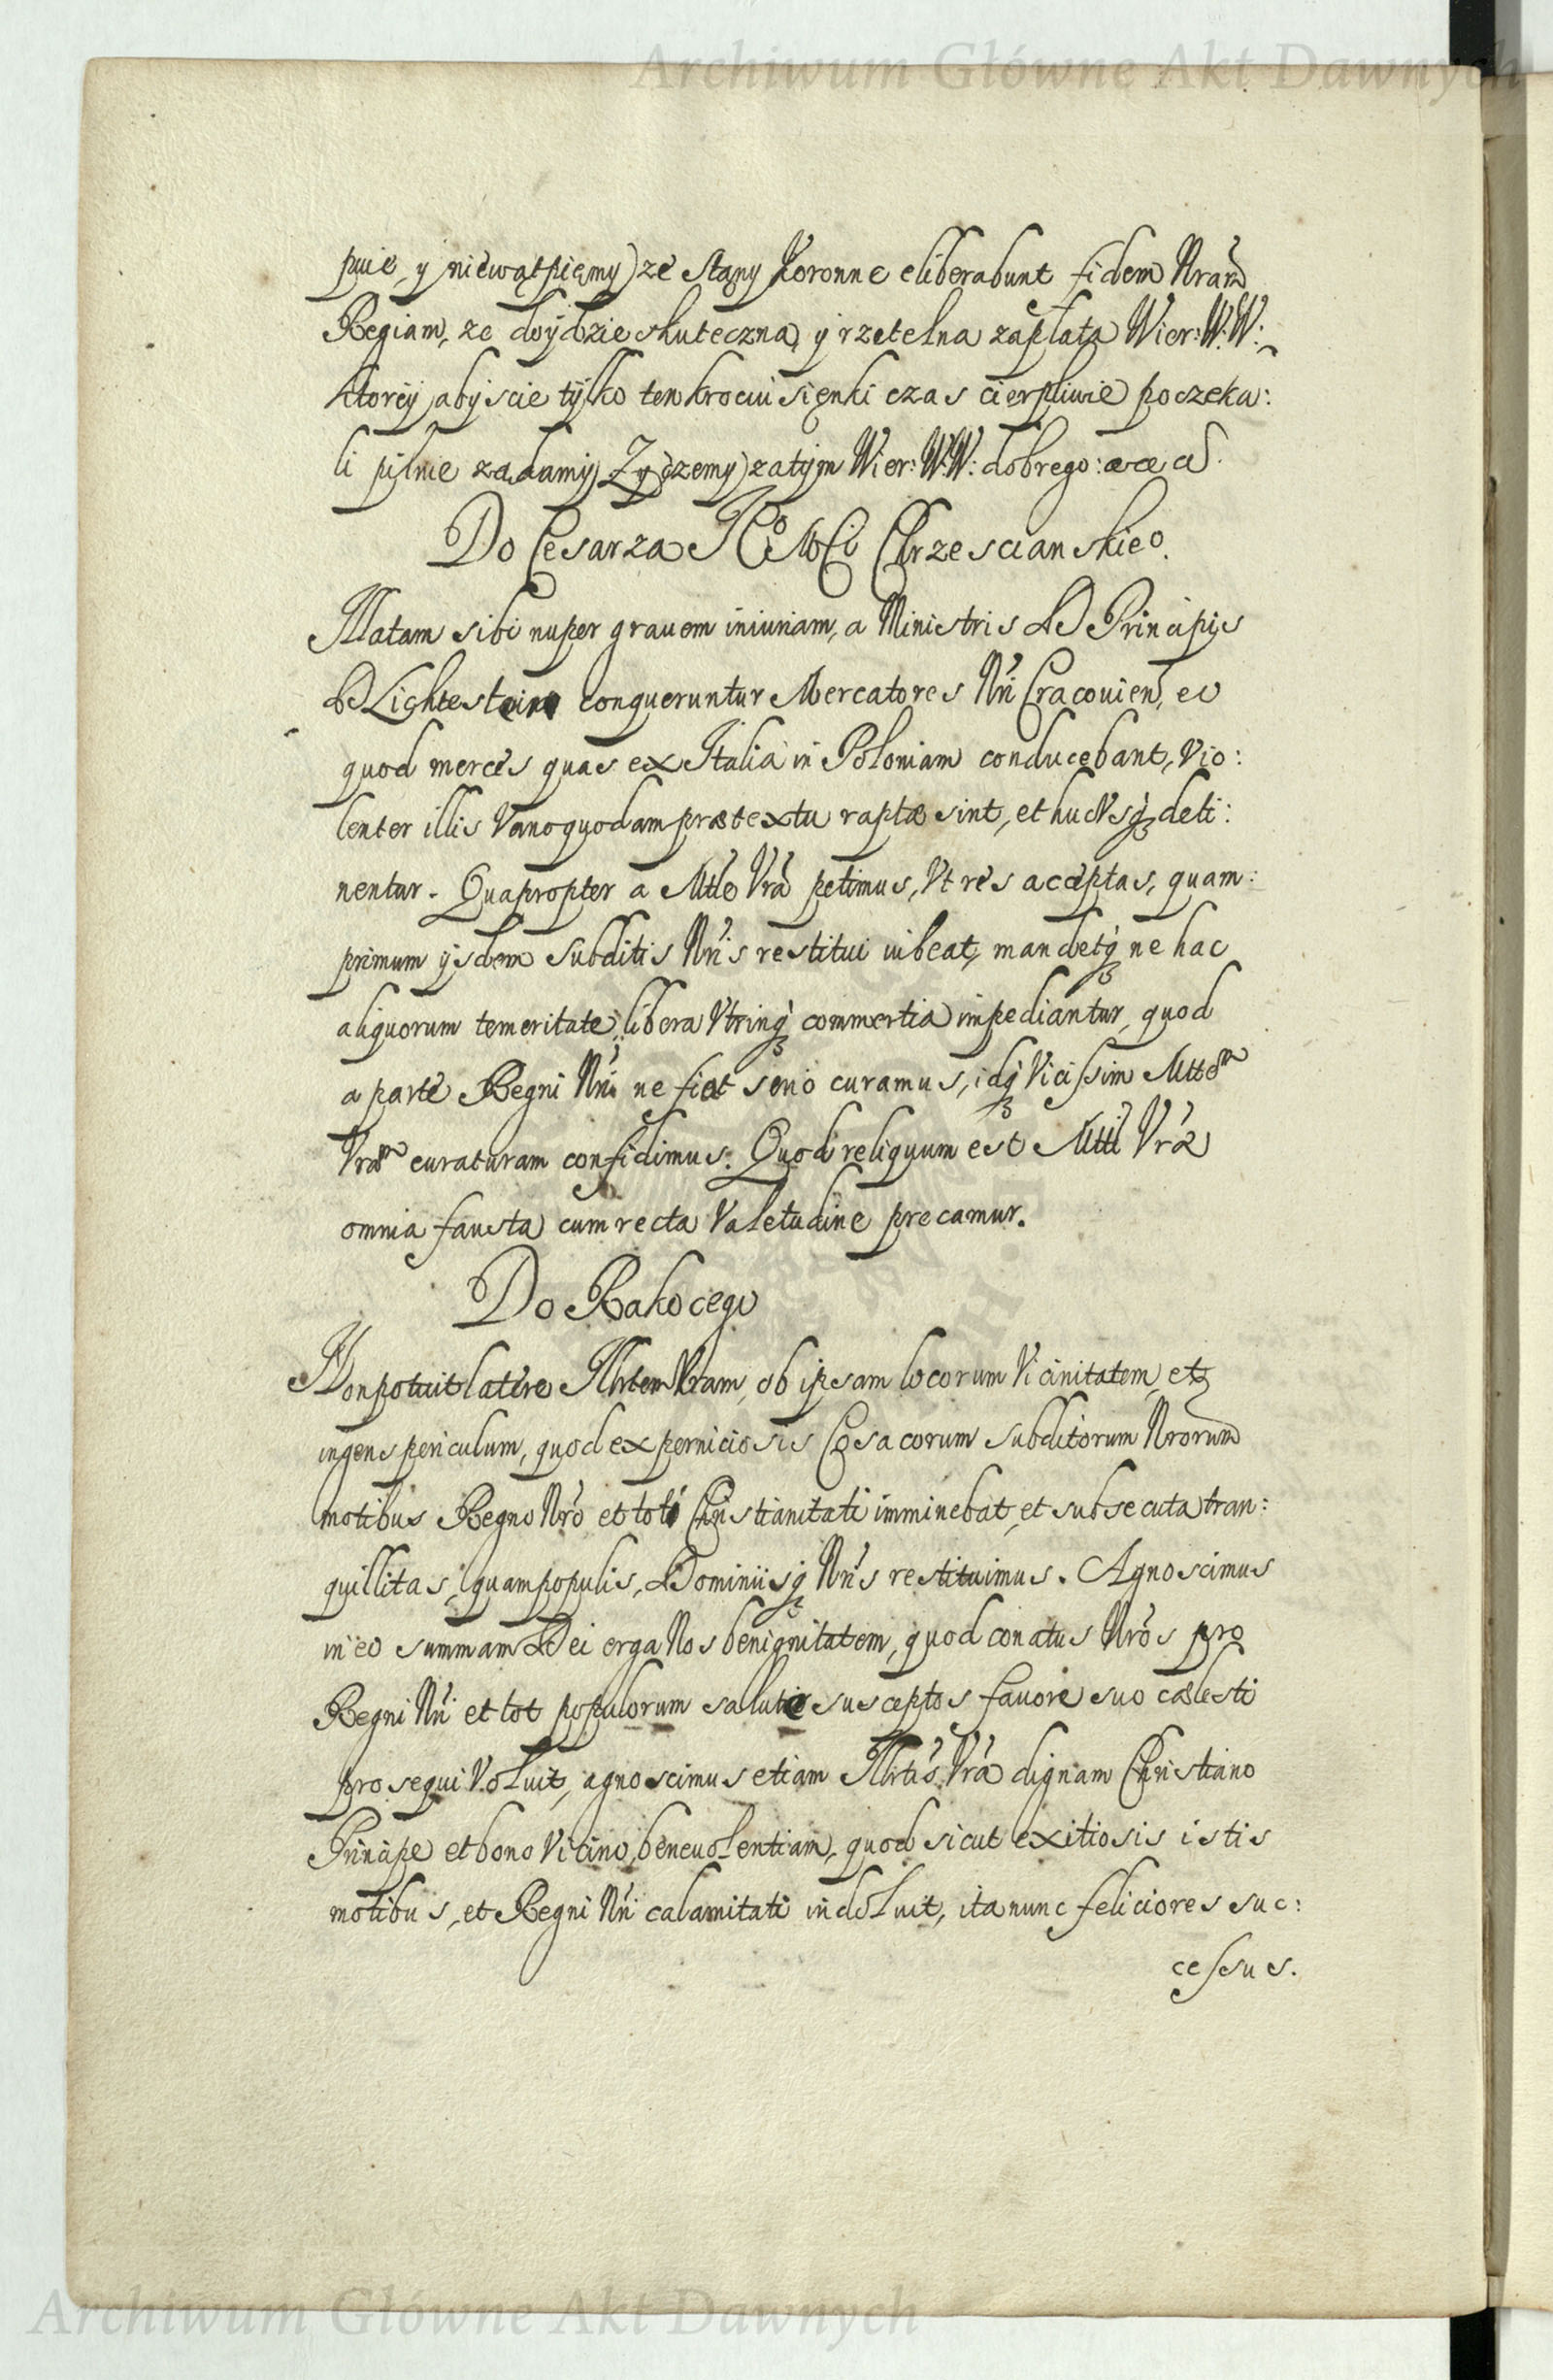 Archiwum Główne Akt Dawnych
pnie, y niewątpięmy) ze Stany Koronne eliberabunt fidem Nram
Regiam, ze doydzie skuteczna, y rzetelna zapłata Wier: W: W:
ktorey abyscie tylko ten krociusięnki czas cierpliwie poczeka:
li pilnie ządamy. Zyczemy zatym Wier: W: W: dobrego:
Do Cesarza JeO MCi Chrzescianskieo.
Illatam sibi nuper grauem iniuriam, a Ministris D Principis
D Lichtestein conqueruntur Mercatores Nri Cracouien, eo
quod merces quas ex Italia in Poloniam conducebant, Vio:
lenter illis Vano quodam prætextu raptæ sint, et huc Vsq deti:
nentur. Quapropter a Mtte Vra petimus, Vt res acceptas, quam:
primum ijsdem Subditis Nris restitui iubeat, mandetq ne hac
aliquorum temeritate, libera Vtrinq commertia impediantur, quod
a parte Regni Nri ne fiat serio curamus, idq Vicissim Mttem
Vram curaturam confidimus. Quod reliquum est Mtti Vræ
omnia fausta cum recta Valetudine precamur.
Do Rakocego
Non potuit latere Illrtem Vram, ob ipsam locorum Vicinitatem, et
ingens periculum, quod ex perniciosis Cosacorum Subditorum Nrorum
motibus Regno Nro et toti Christianitati imminebat, et subsecuta tran:
quillitas, quam populis, Dominiisq Nris restituimus. Agnoscimus
in eo summam Dei erga Nos benignitatem, quod conatus Nros pro
Regni Nri et tot populorum salute susceptos fauore suo cælesti
prosequi Voluit, agnoscimus etiam Illrtis Vra dignam Christiano
Principe et bono Vicino, beneuolentiam, quod sicut exitiosis istis
motibus, et Regni Nri calamitati indoluit, ita nunc feliciores suc:
cessus.
Archiwum Główne Akt Dawnych